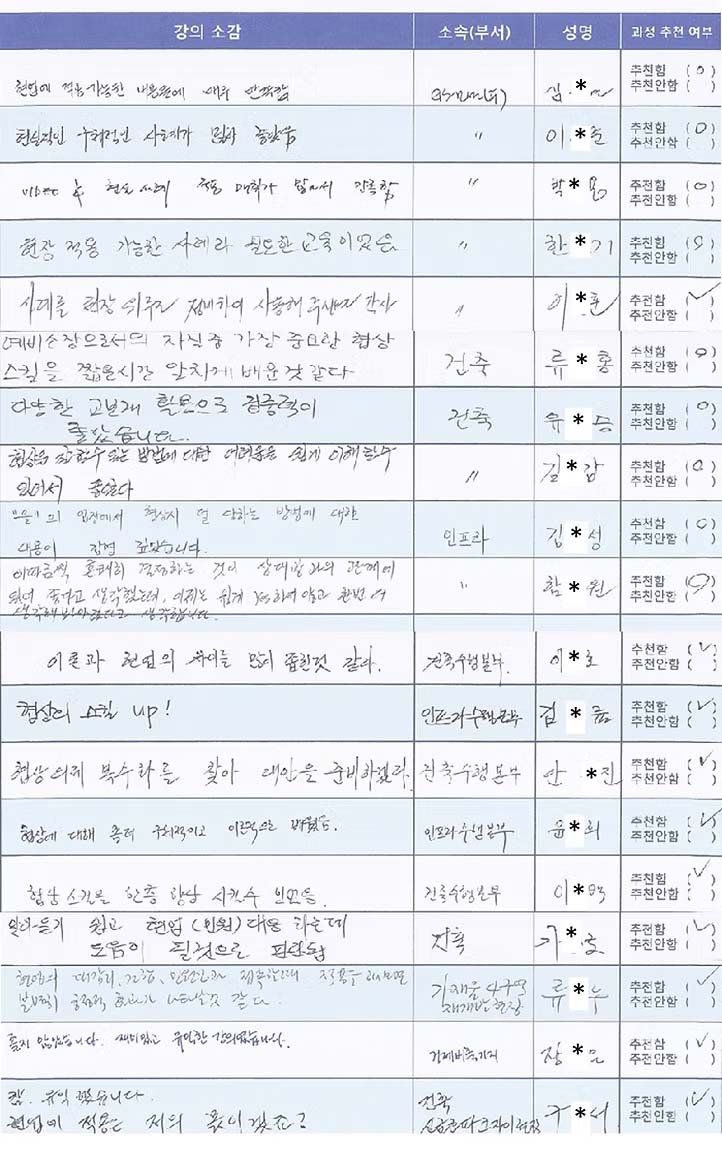 강의 소감 소속(부서) 성명 과정 추천 여부
현업에 적용가능한 내용들에 매우 만족함 김*
추천함 (O)
추천안함 ( )
현실적인 구체적인 사례가 많아 좋았음 〃 이*준
추천함 (O)
추천안함 ( )
& 현실 많아서 만족함 〃 박*용
추천함 (O)
추천안함 ( )
현장 적용 가능한 사례라 필요한 교육이었음 〃 한*기
추천함 (O)
추천안함 ( )
사례를 현장 위주로 정비하여 사용해 주셔서 감사 〃 이*훈
추천함 (✓)
추천안함 ( )
예비소장으로서의 자질중 가장 중요한 협상
스킬을 짧은시간 알차게 배운것 같다 건축 류*홍
추천함 (O)
추천안함 ( )
다양한 교보재 활용으로 집중력이
좋았습니다. 건축 유*승
추천함 (O)
추천안함 ( )
협상을 잘 할수 있는 방법에 대한 어려움을 쉽게 이해할수
있어서 좋았다 〃 길*감
추천함 (O)
추천안함 ( )
"을"의 입장에서 협상시 덜 당하는 방법에 대한
내용이 장점 깊었습니다. 인프라 김*성
추천함 (O)
추천안함 ( )
이따금씩 흔쾌히 결정하는 것이 상대방과의 관계에
있어 좋다고 생각했는데, 이제는 쉽게 Yes하지 않고 한번 더
생각해봐야겠다고 생각합니다. 〃 함*원
추천함 (O)
추천안함 ( )
이론과 현업의 차이를 많이 좁힌것 같다. 건축수행본부 이*호
추천함 (✓)
추천안함 ( )
협상의 스킬 up! 인프라수행본부 김*
추천함 (✓)
추천안함 ( )
협상의제 복수화를 찾아 대안을 준비하겠다. 건축수행본부 안*진
추천함 (✓)
추천안함 ( )
협상에 대해 좀더 구체적이고 이론적으로 배웠음. 인프라수행본부 윤*희
추천함 (✓)
추천안함 ( )
협상 스킬을 한층 향상 시킬수 있었음. 건축수행본부 이*
추천함 (✓)
추천안함 ( )
알아듣기 쉽고 현업(민원)대응 하는데
도움이 될것으로 판단됨 건축 *호
추천함 (✓)
추천안함 ( )
현업의 대관청, 조합, 민원인과 접촉할때 적용
효과가 나타날것 같다. 가재울4구역
재개발현장 류*우
추천함 (✓)
추천안함 ( )
졸지 않았습니다. 재미있고 유익한 강의였습니다. 장*
추천함 (✓)
추천안함 ( )
참. 유익 했습니다.
현업에 적용은 저의 몫이겠죠? 건축
파크자이현장 *서
추천함 (✓)
추천안함 ( )